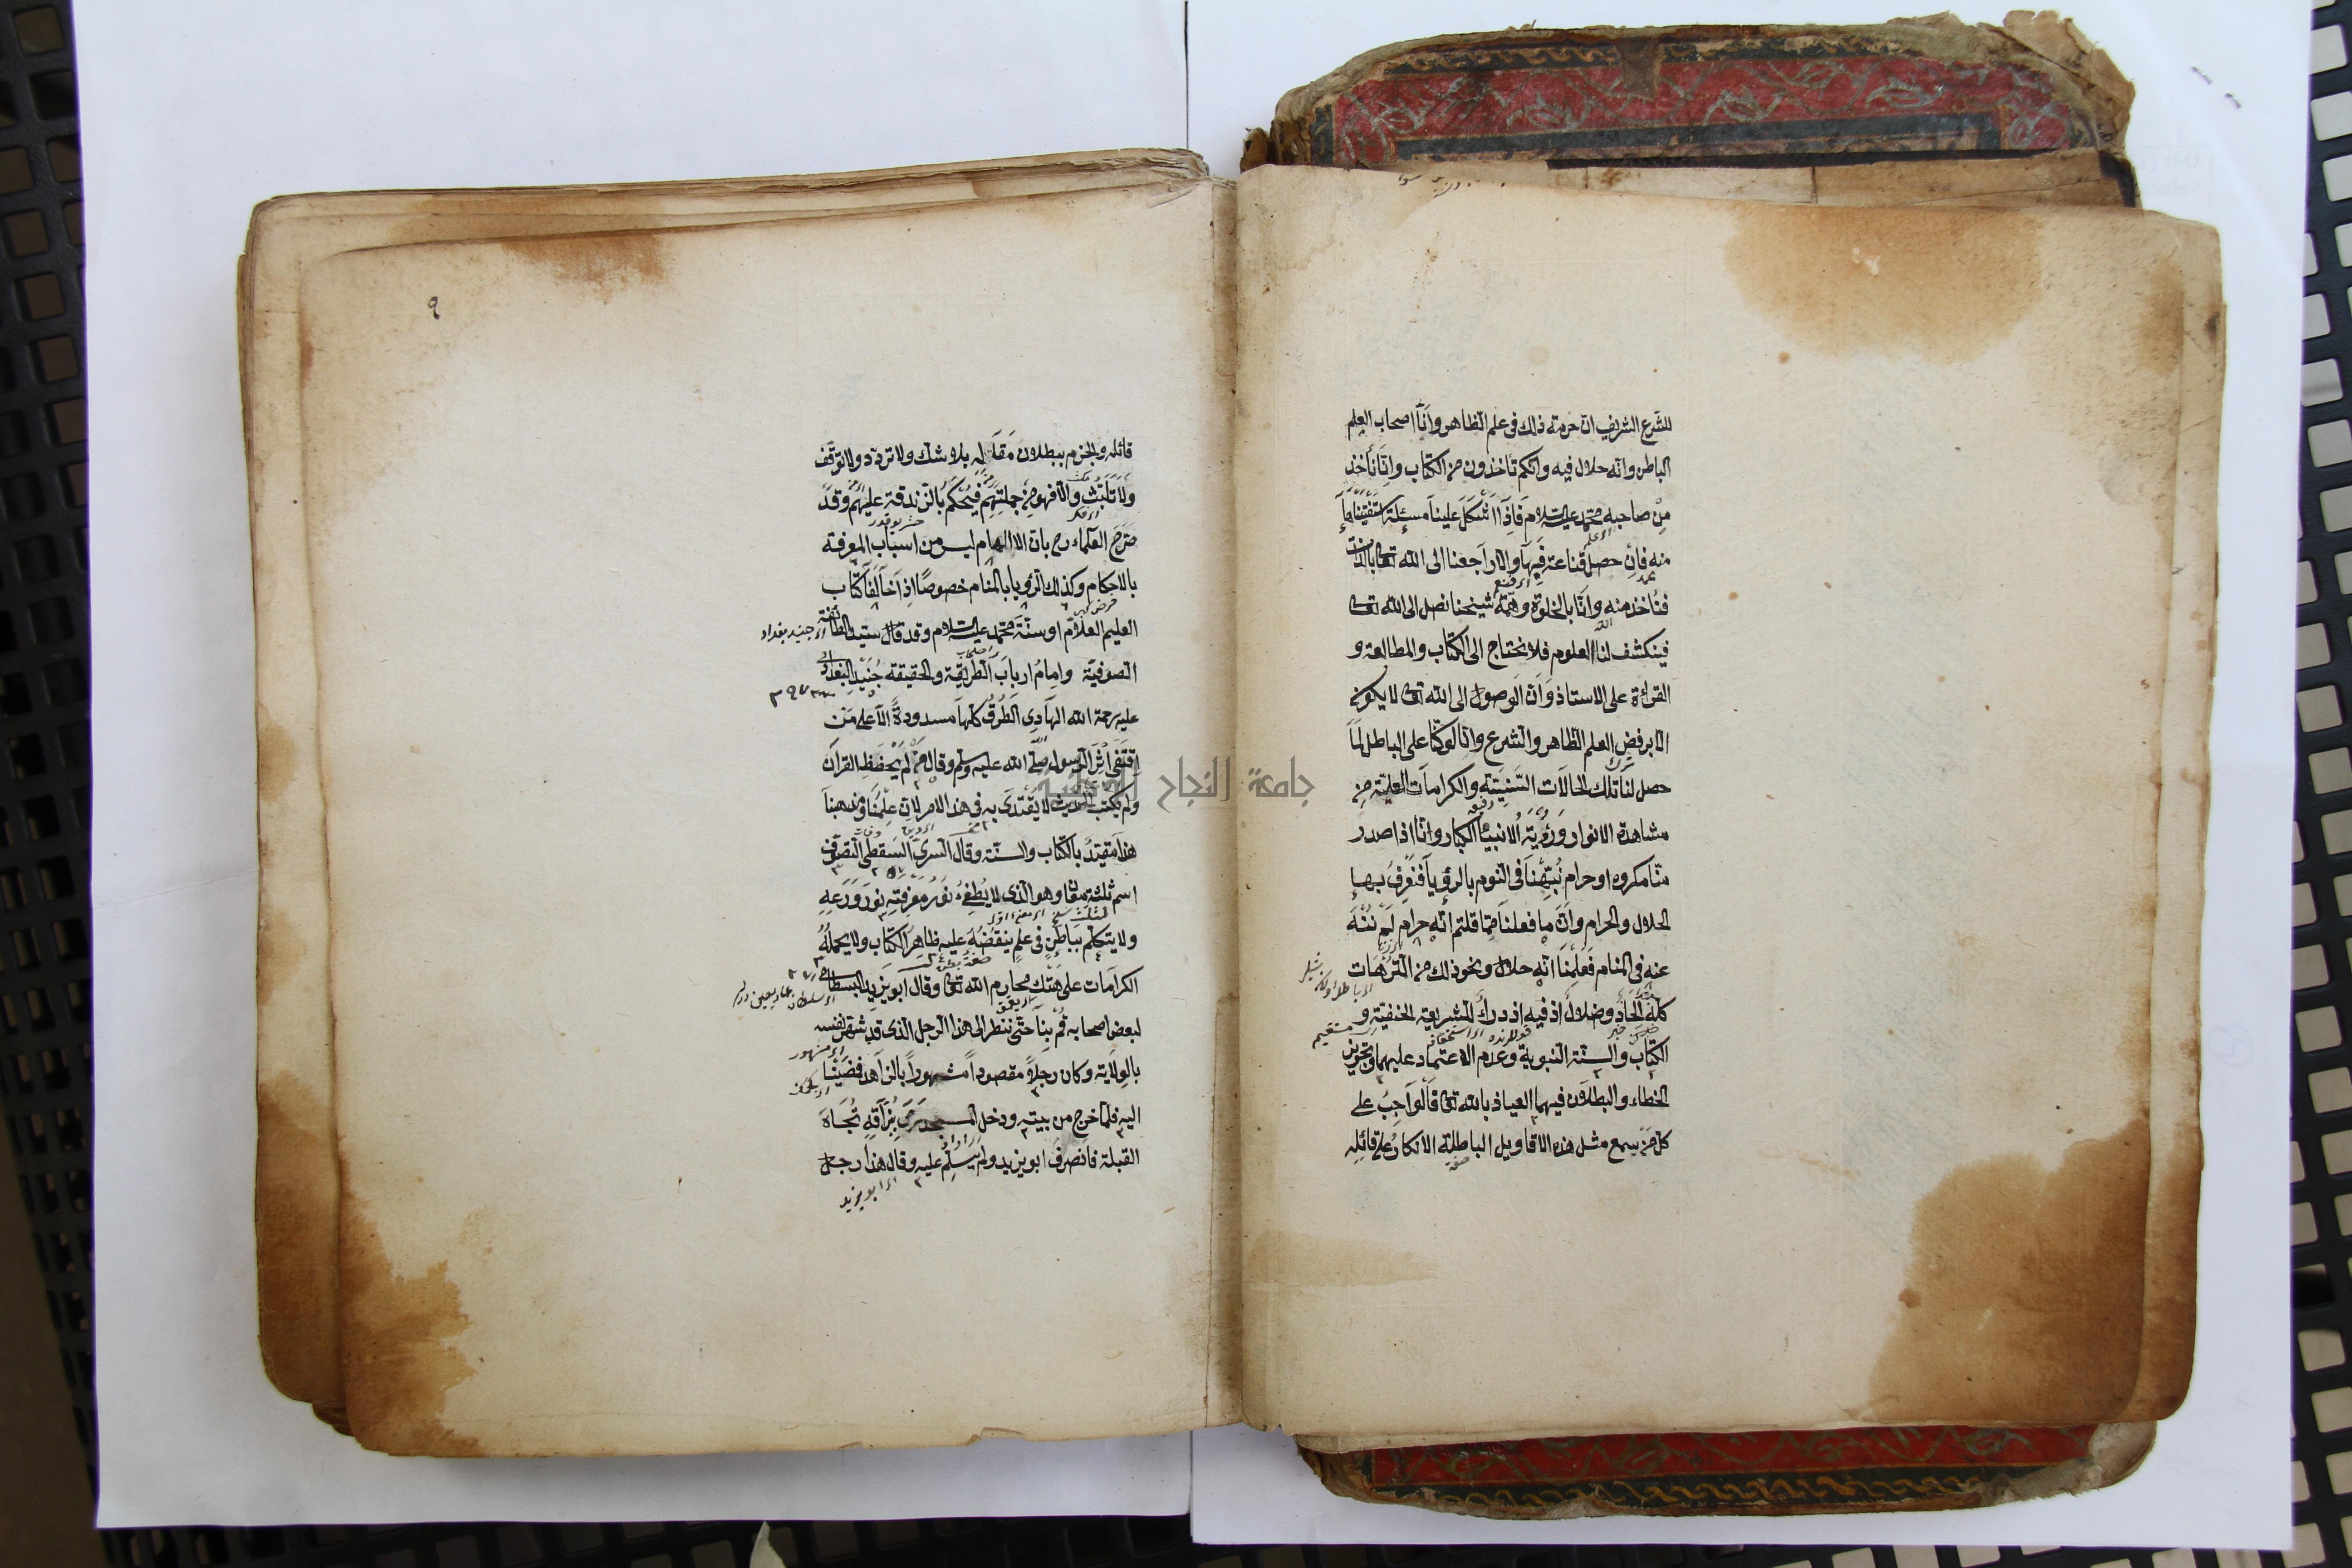 للشرع الشريف ان حرمة ذلك فى علم الظاهر وانا اصحاب العلم
الباطن وانه حلال فيه وانكم تأخذون من الكتاب وانا نأخذ
من صاحبه محمد عليه السلام فاذا اشكل علينا مسئلة استفتيناها
منه فان حصل قناعة فيها والا راجعنا الى الله تعالى بالذات
فنأخذ منه وانا بالخلوة وهمة شيخنا نصل الى الله تعالى
فينكشف لنا العلوم فلا نحتاج الى الكتاب والمطالعة و
القراءة على الاستاذ وان الوصول الى الله تعالى لا يكون
الا برفض العلم الظاهر والشرع وانا لو كنا على الباطل لما
حصل لنا تلك الحالات السنية والكرامات العلية من
مشاهدة الانوار ورؤية الانبياء الكبار وانا اذا صدر
منا مكروه او حرام نبهنا فى النوم بالرؤيا فنعرف بها
الحلال والحرام وان ما فعلنا مما قلتم انه حرام لم ننه
عنه فى المنام فعلمنا انه حلال ونحو ذلك من الترهات
كله الحاد وضلال اذ فيه ازدراء للشريعة الحنفية و
الكتاب والسنة النبوية وعدم الاعتماد عليهما وتجويز
الخطاء والبطلان فيهما العياذ بالله تعالى فالواجب على
كل من سمع مثل هذه الاقاويل الباطلة الانكار على قائله
٩
قائله والجزم ببطلان مقاله بلا شك ولا تردد ولا توقف
ولا تلبث والا فهو من جملتهم فيحكم بالزندقة عليهم وقد
صرح العلماء رح بان الالهام ليس من اسباب المعرفة
بالاحكام وكذلك الرؤيا بالمنام خصوصا اذا خالف كتاب
العليم العلام او سنة محمد عليه السلام وقد قال سيد الطائفة
اى جنيد بغداد
الصوفية وامام ارباب الطريقة والحقيقة جنيد البغدادى
عليه رحمة الله الهادى الطرق كلها مسدودة الا على من
اقتفى اثر الرسول صلى الله عليه وسلم وقال من لم يحفظ القرآن
ولم يكتب الحديث لا يقتدى به فى هذا الامر لان علمنا ومذهبنا
هذا مقيد بالكتاب والسنة وقال السرى السقطى التصوف
اسم ثلثة معان وهو الذى لا يطفئ نور معرفته نور ورعه
ولا يتكلم بباطن فى علم ينقضه عليه ظاهر الكتاب ولا يحمله
الكرامات على هتك محارم الله تعالى وقال ابو يزيد البسطامى
لبعض اصحابه قم بنا حتى ننظر الى هذا الرجل الذى قد شهر نفسه
اى مشهور
بالولاية وكان رجلا مقصودا مشهورا بالزهد فمضينا
اليه فلما خرج من بيته ودخل المسجد رمى بزاقه تجاه
القبلة فانصرف ابو يزيد ولم يسلم عليه وقال هذا رجل
اى ابو يزيد
جامعة النجاح الوطنية